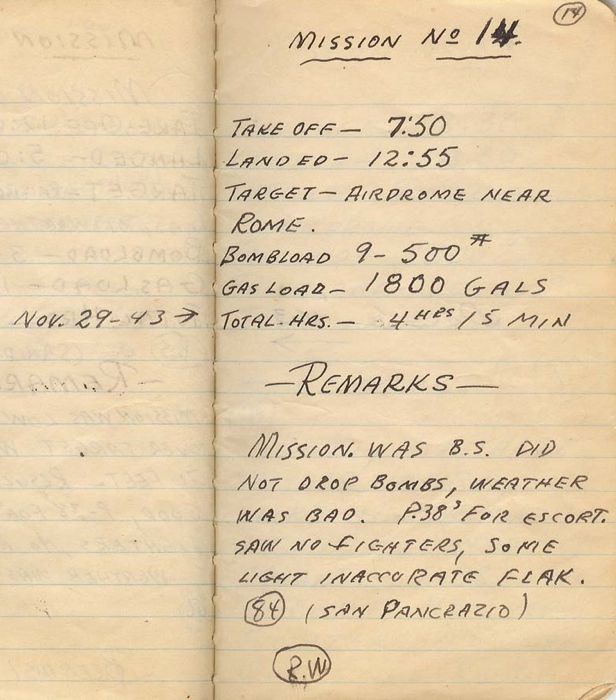 14
MISSION No 14.
TAKE OFF — 7:50
LANDED — 12:55
TARGET — AIRDROME NEAR
ROME.
BOMBLOAD 9-500#
GAS LOAD — 1800 GALS
NOV. 29-43 → TOTAL HRS. — 4 HRS 15 MIN
— REMARKS —
MISSION. WAS B.S. DID
NOT DROP BOMBS, WEATHER
WAS BAD. P.38s FOR ESCORT.
SAW NO FIGHTERS, SOME
LIGHT INACCURATE FLAK.
84 (SAN PANCRAZIO)
R.W